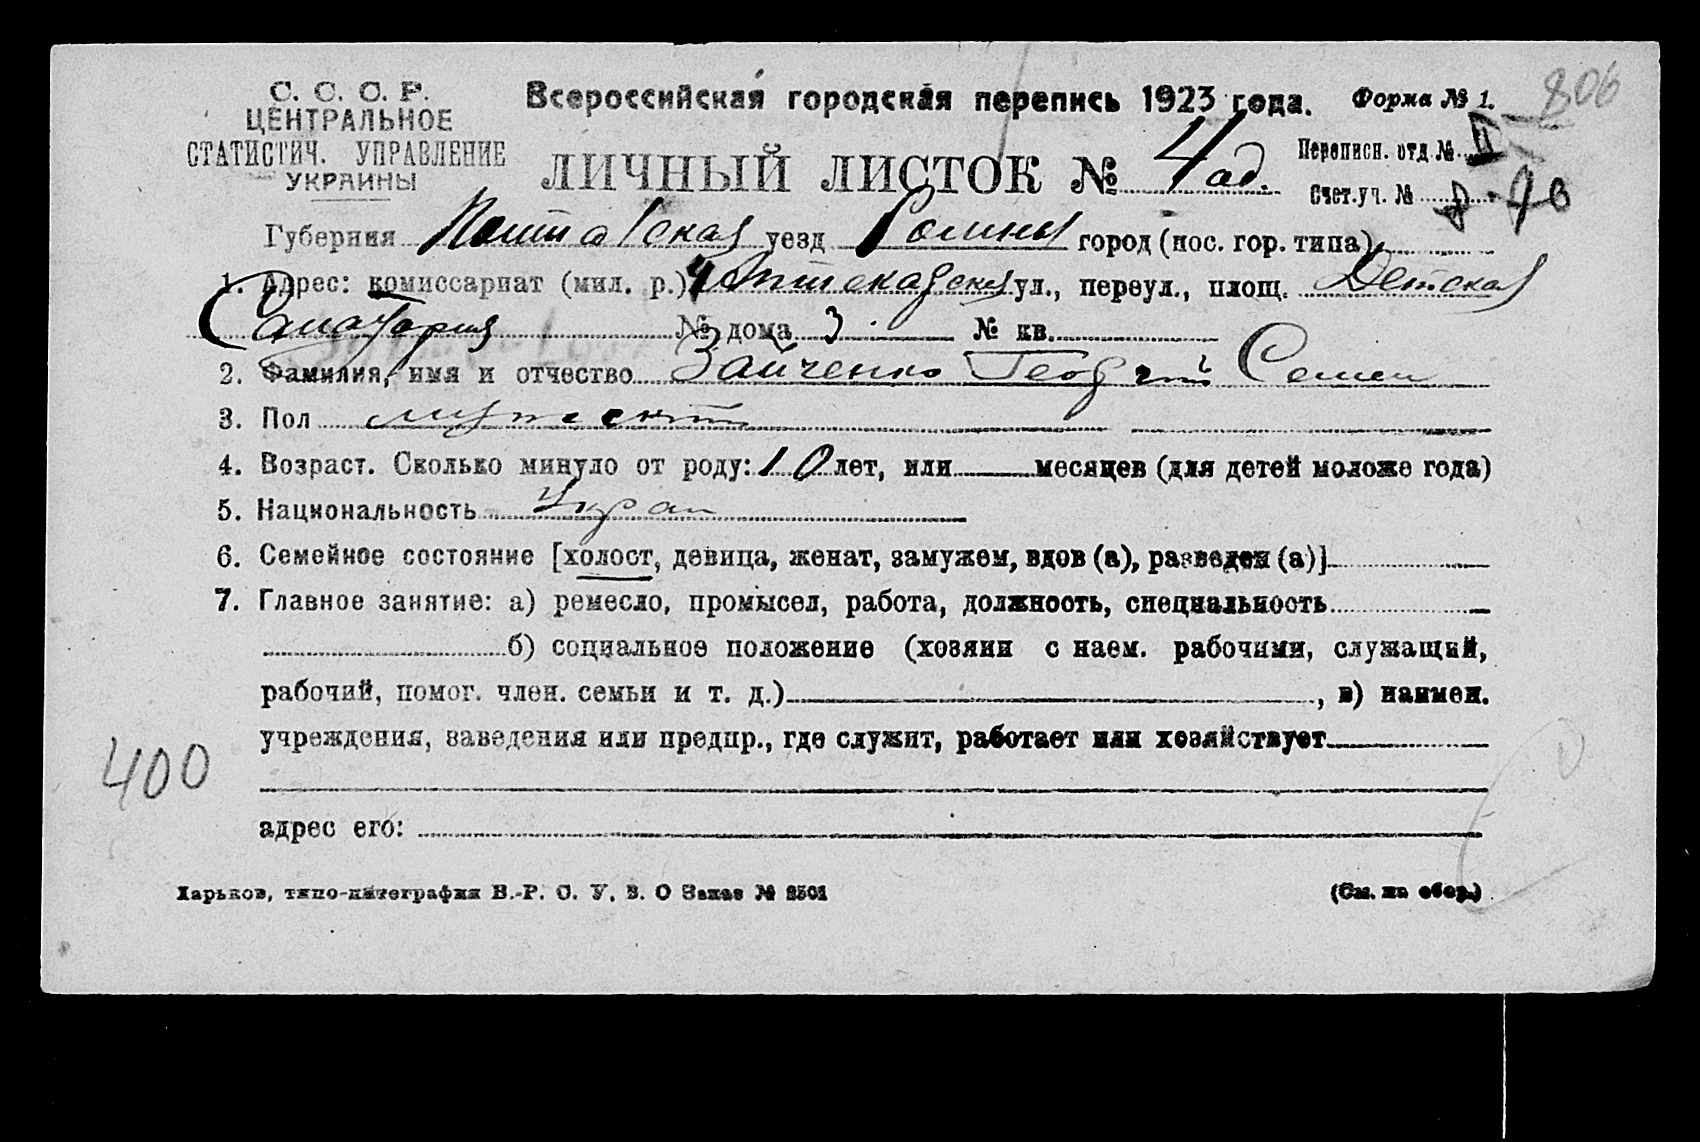 806
С. С. С. Р. Всероссийская городская перепись 1923 года. Форма № 1.
ЦЕНТРАЛЬНОЕ
СТАТИСТИЧ. УПРАВЛЕНИЕ
УКРАИНЫ
ЛИЧНЫЙ ЛИСТОК № 4 ад. Переписн. отд. № II
Счет.уч. №
Губерния Полтавская уезд Ромны город (пос. гор. типа)
1. Адрес: комиссариат (мил. р.) Аптекарская ул., переул., площ. Детская
Санатория № дома 3 № кв.
2. Фамилия, имя и отчество Зайченко Георгий Семен
3. Пол мужской
4. Возраст. Сколько минуло от роду: 10 лет, или месяцев (для детей моложе года)
5. Национальность Украи
6. Семейное состояние [холост, девица, женат, замужем, вдов (а), разведен (а)]
7. Главное занятие: а) ремесло, промысел, работа, должность, специальность
б) социальное положение (хозяин с наем. рабочими, служащий,
рабочий, помог. член. семьи и т. д.) , в) наимен.
учреждения, заведения или предпр., где служит, работает или хозяйствует
400
адрес его:
Харьков, типо-литография В.-Р. С. У. В. О Заказ № 2501 (См. на обор.)